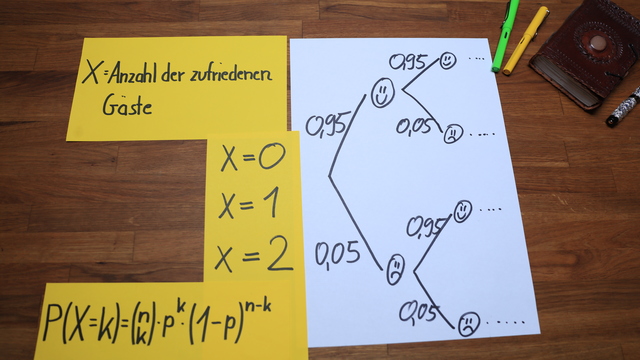 X = Anzahl der zufriedenen
Gäste
X = 0
X = 1
X = 2
P(X=k)=(n k)·p^k·(1-p)^n-k
0,95
0,05
0,95 ....
0,05 ....
0,95 ....
0,05 ......